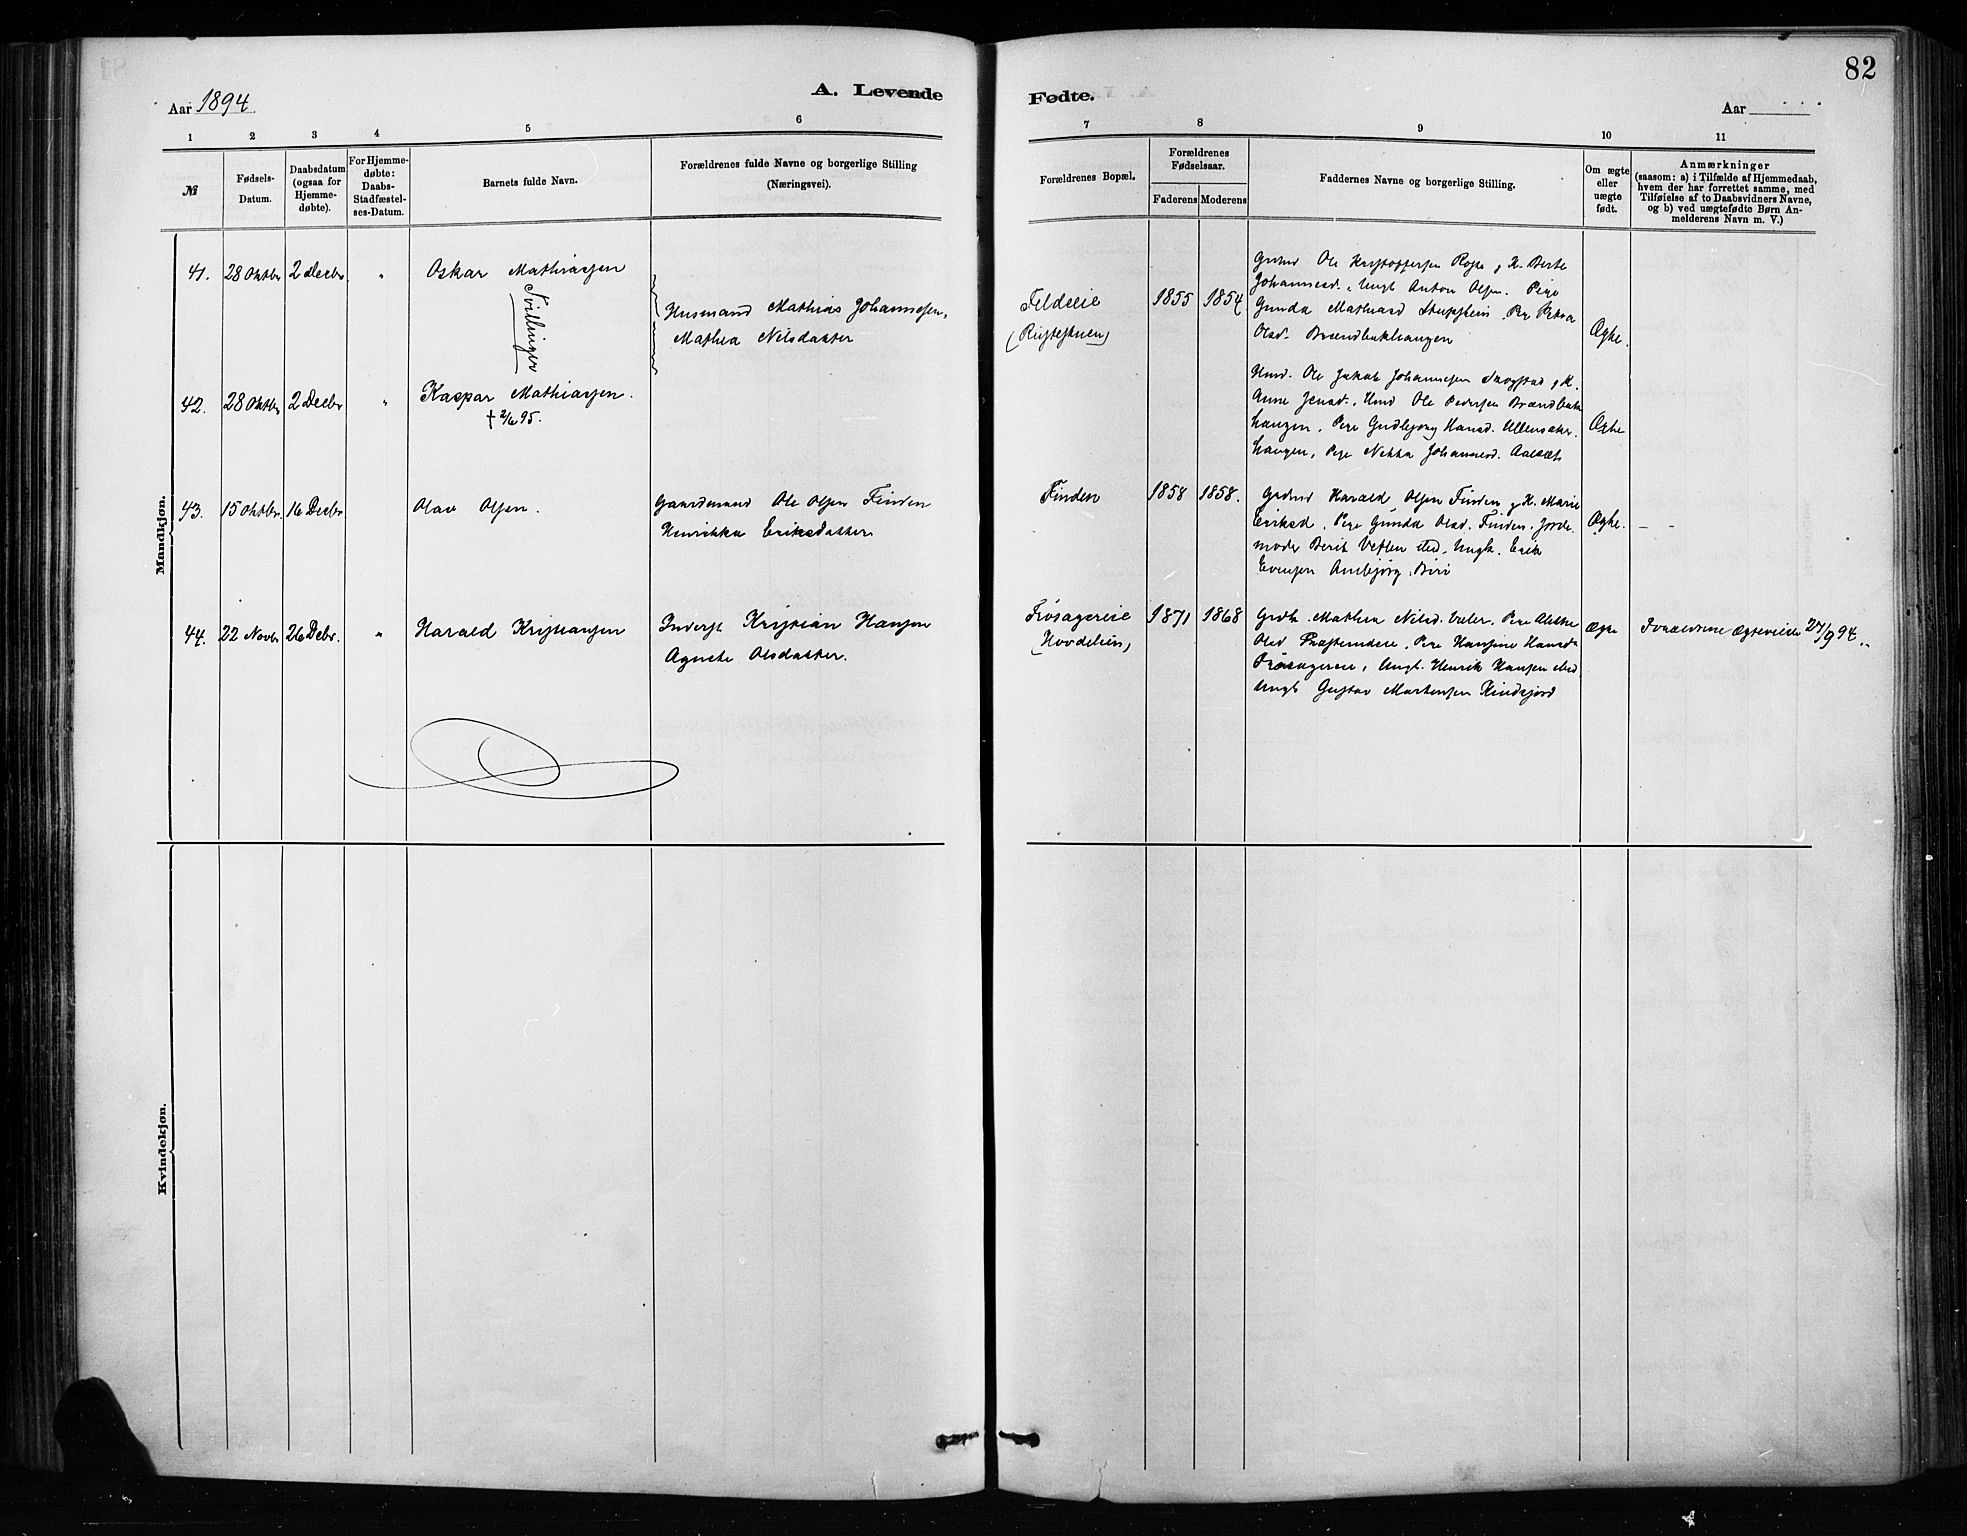 82
Aar 1894.
A. Levende
Fødte.
Aar
1 2 3 4 5 6
7 8 9 10 11
№
Fødsels-
Datum.
Daabsdatum
(ogsaa for
Hjemme-
døbte).
For Hjemme-
døbte:
Daabs-
Stadfæstel-
ses-Datum.
Barnets fulde Navn.
Forældrenes fulde Navne og borgerlige Stilling
(Næringsvei).
Forældrenes Bopæl.
Forældrenes
Fødselsaar.
Faderens Moderens
Faddernes Navne og borgerlige Stilling.
Om ægte
eller
uægte
født.
Anmærkninger
(saasom: a) i Tilfælde af Hjemmedaab,
hvem der har forrettet samme, med
Tilføielse af to Daabsvidners Navne,
og b) ved uægtefødte Børn An-
melderens Navn m. V.)
Mandkjøn.
41. 28 Oktbr 2 Decbr " Oskar Mathiassen
Tvillinger
Husmand Mathias Johannesen,
Mathea Nilsdatter
Feldeie
1855 1854
Gmd Ole Kristoffersen K. Berte
Johannesd., Ungk Anton Olsen. Pige
Gunda Mathiasd Pge Petra
Olsd. Brændbakhaugen
Ægte.
42. 28 Oktbr 2 Decbr " Kaspar Mathiassen.
† 2/6 95.
Hmd. Ole Jakob Johannesen K.
Anne Jensd., Hmd Ole Pedersen Brændbak
haugen, Pige Gudbjørg Hansd. Ullensaker
haugen, Pige Johannesd.
Ægte
43. 15 Oktbr. 16 Decbr Olav Olsen.
Gaardmand Ole Olsen Finden
Henrikka Eriksdatter
Finden
1858 1858.
Gmd Harald Olsen Finden K. Marie
Eriksd, Pige Gunda Olsd. Finden. Jorde
moder Berit Ungk. Erik
Evensen Biri
Ægte. - -
44. 22 Novbr 26 Debr. " Harald Kristiansen
Inderst Kristian Hansen
Agnete Olsdatter.
Frøsagereie
1871 1868
Mathea Nilsd. Pige
Olsd Præsterudeie, Pige Hansine Hansd
Frøsagereie, Ungk. Henrik Hansen
Ungk Gustav Martinsen
Ægte
Forældrene Ægteviede 27/9 94.
Kvindekjøn.